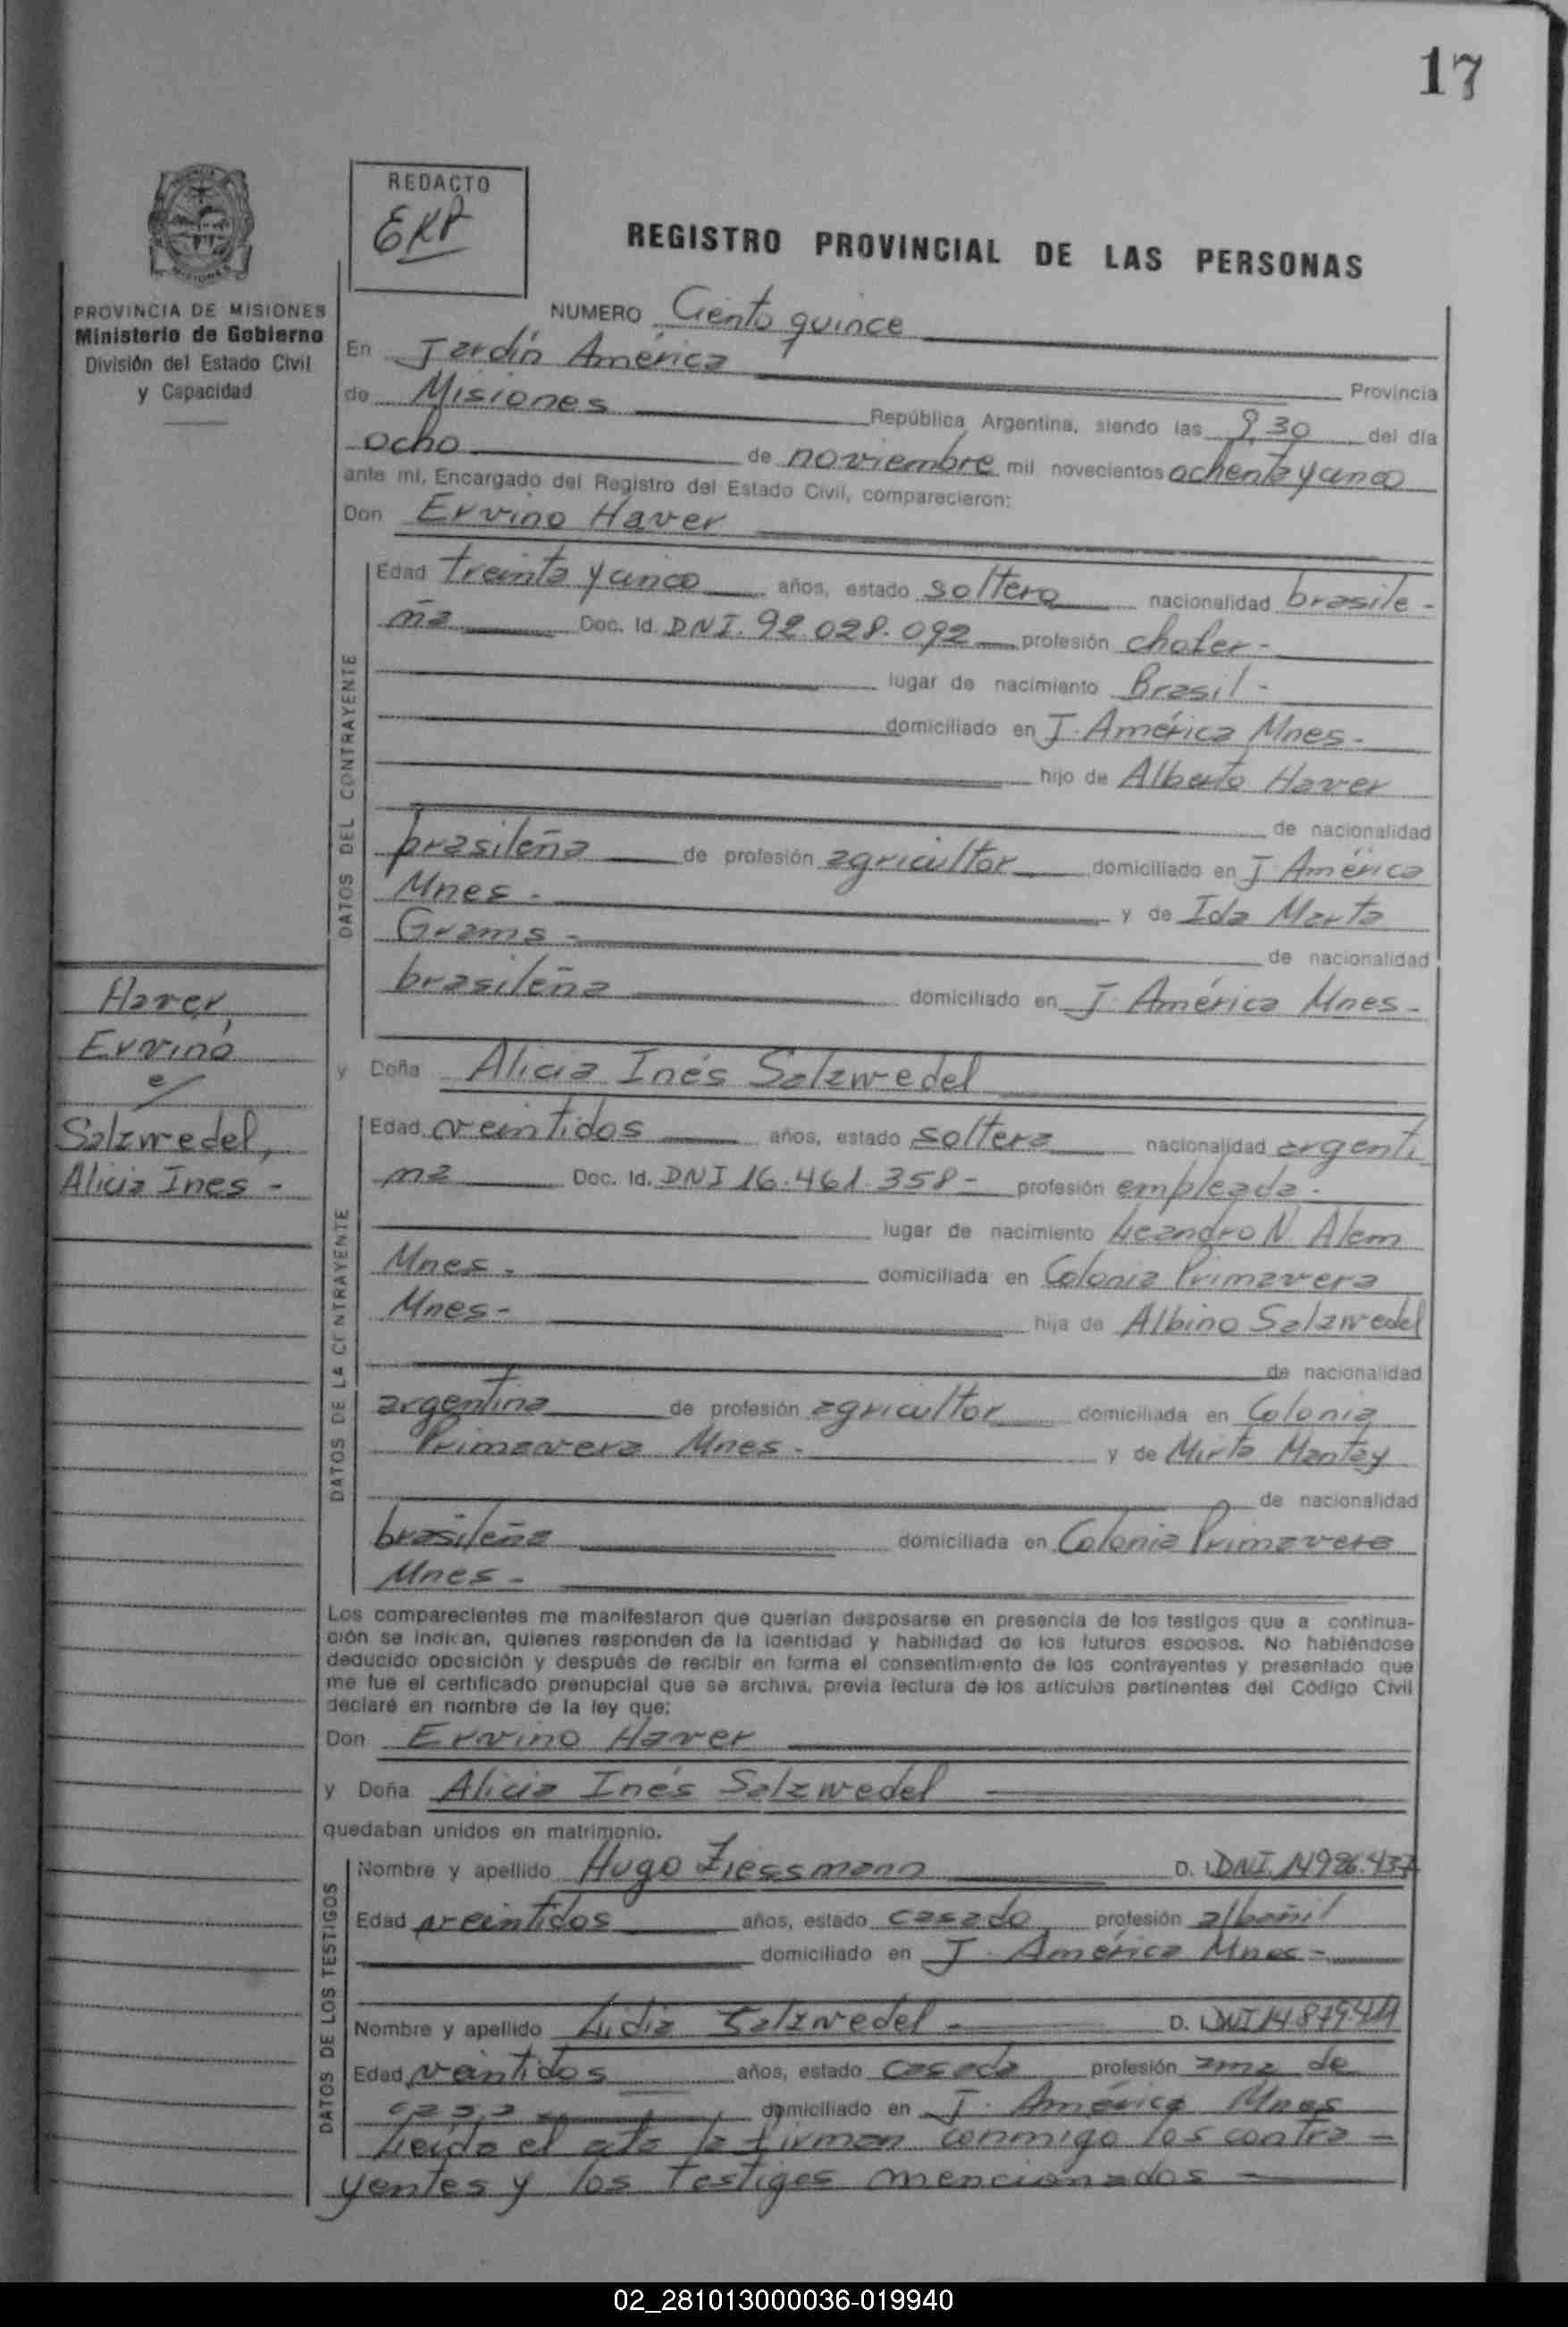 17
REDACTO
EKP
REGISTRO PROVINCIAL DE LAS PERSONAS
PROVINCIA DE MISIONES
Ministerio de Gobierno
División del Estado Civil
y Capacidad
NUMERO Ciento quince
En Jardín América Provincia
de Misiones República Argentina, siendo las 9,30 del día
ocho de noviembre mil novecientos ochenta y cinco
ante mí, Encargado del Registro del Estado Civil, comparecieron:
Don Ervino Haver
DATOS DEL CONTRAYENTE
Edad treinta y cinco años, estado soltero nacionalidad brasile-
ña Doc. Id. DNI. 92.028.092 profesión chofer-
lugar de nacimiento Brasil-
domiciliado en J. América Mnes-
hijo de Alberto Haver
de nacionalidad
brasileña de profesión agricultor domiciliado en J. América
Mnes- y de Ida Marta
Grams- de nacionalidad
brasileña domiciliado en J. América Mnes-
Haver,
Ervino
c/
Salzwedel,
Alicia Ines-
y Doña Alicia Inés Salzwedel
DATOS DE LA CONTRAYENTE
Edad veintidos años, estado soltera nacionalidad argenti
na Doc. Id. DNI 16.461.358- profesión empleada-
lugar de nacimiento Leandro N. Alem
Mnes- domiciliada en Colonia Primavera
Mnes- hija de Albino Salzwedel
de nacionalidad
argentina de profesión agricultor domiciliada en Colonia
Primavera Mnes- y de Mirta Mantay
de nacionalidad
brasileña domiciliada en Colonia Primavera
Mnes-
Los comparecientes me manifestaron que querían desposarse en presencia de los testigos que a continua-
ción se indican, quienes responden de la identidad y habilidad de los futuros esposos. No habiéndose
deducido oposición y después de recibir en forma el consentimiento de los contrayentes y presentado que
me fue el certificado prenupcial que se archiva, previa lectura de los artículos pertinentes del Código Civil
declaré en nombre de la ley que:
Don Ervino Haver
y Doña Alicia Inés Salzwedel
quedaban unidos en matrimonio.
DATOS DE LOS TESTIGOS
Nombre y apellido Hugo Ziessmann D. I. DNI. 14.986.437
Edad veintidos años, estado casado profesión albañil
domiciliado en J. América Mnes-
Nombre y apellido Lidia Salzwedel- D. I. DNI 14.879.
Edad veintidos años, estado casada profesión ama de
casa domiciliado en J. América Mnes
Leída el acta la firman conmigo los contra-
yentes y los testigos mencionados
02_281013000036-019940